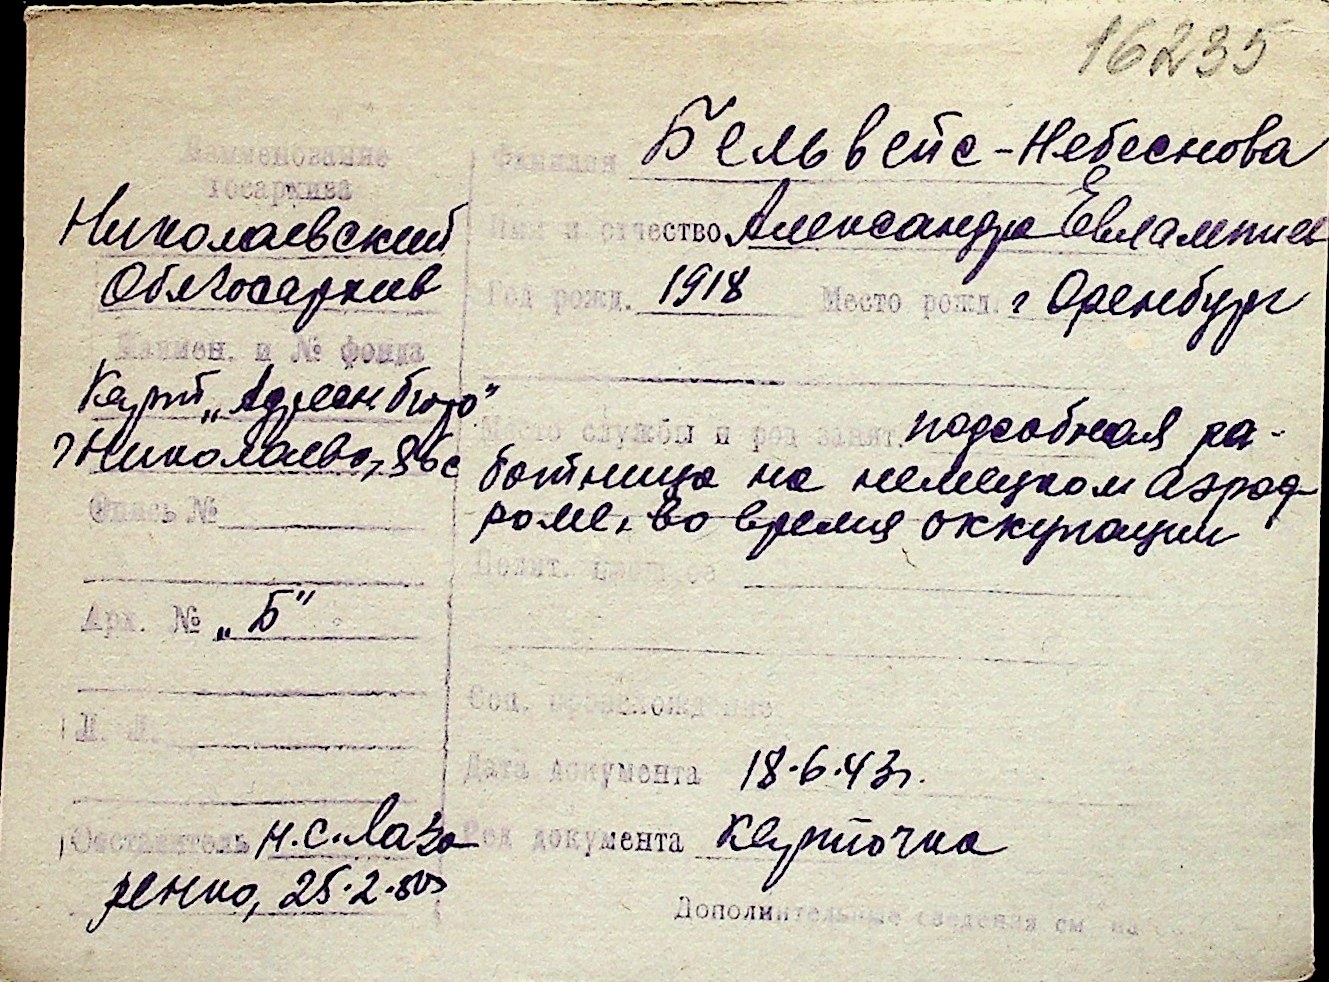 16235
Наименование
Госархива
Николаевский
Облгосархив
Наимен. и № фонда
Карт „Адресн бюро"
г Николаева,
Опись №
Арх. № „Б"
Л. Л.
Составитель Н.С.Лаза
ренко, 25.2.
Фамилия Бельвейс-Небеснова
Имя и отчество Александра Евлампиев
Год рожд. 1918 Место рожд. г Оренбург
Место службы и род занят. подсобная ра-
ботница на немецком аэрод-
роме, во время оккупации
Полит.
Соц. происхождение
Дата документа 18.6.43г.
Род документа карточка
Дополнительные сведения см на